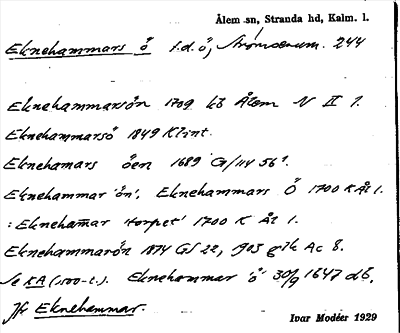 Ålem sn, Stranda hd, Kalm. l.
Eknehammars ö f.d. ö, Strömserum. 244
Eknehammarsön 1709 kb Ålem N II 1.
Eknehammarsö 1849 Klint.
Eknehamars öen 1689 G/114 56¹.
Eknehammar 'ön', Eknehammars Ö 1700 K Ål 1.
: Ekneham̄ar torpet' 1700 K Ål 1.
Eknehammarön 1874 GS 22, 1903 glk Ac 8.
Se KA (1500-t.). Eknehammar 'ö' 30/9 1647 db.
Jfr Eknehammar.
Ivar Modéer 1929